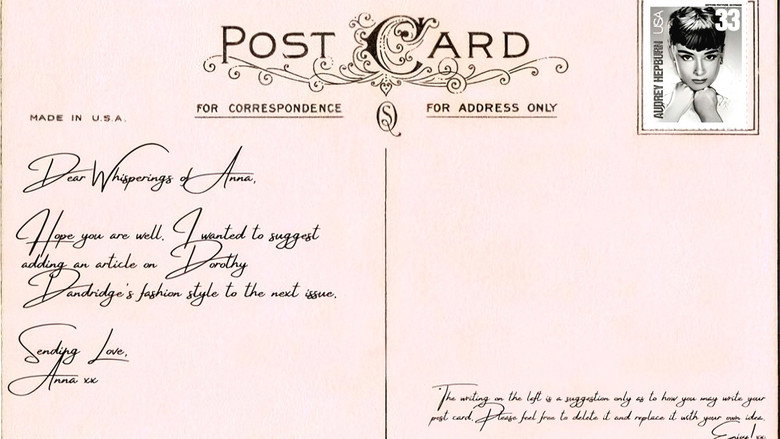 POST CARD
FOR CORRESPONDENCE
FOR ADDRESS ONLY
MADE IN U.S.A.
USA
33
AUDREY HEPBURN
Dear Whisperings of Anna,
Hope you are well. I wanted to suggest
adding an article on Dorothy
Dandridge's fashion style to the next issue.
Sending Love,
Anna xx
The writing on the left is a suggestion only as to how you may write your
post card. Please feel free to delete it and replace it with your own idea.